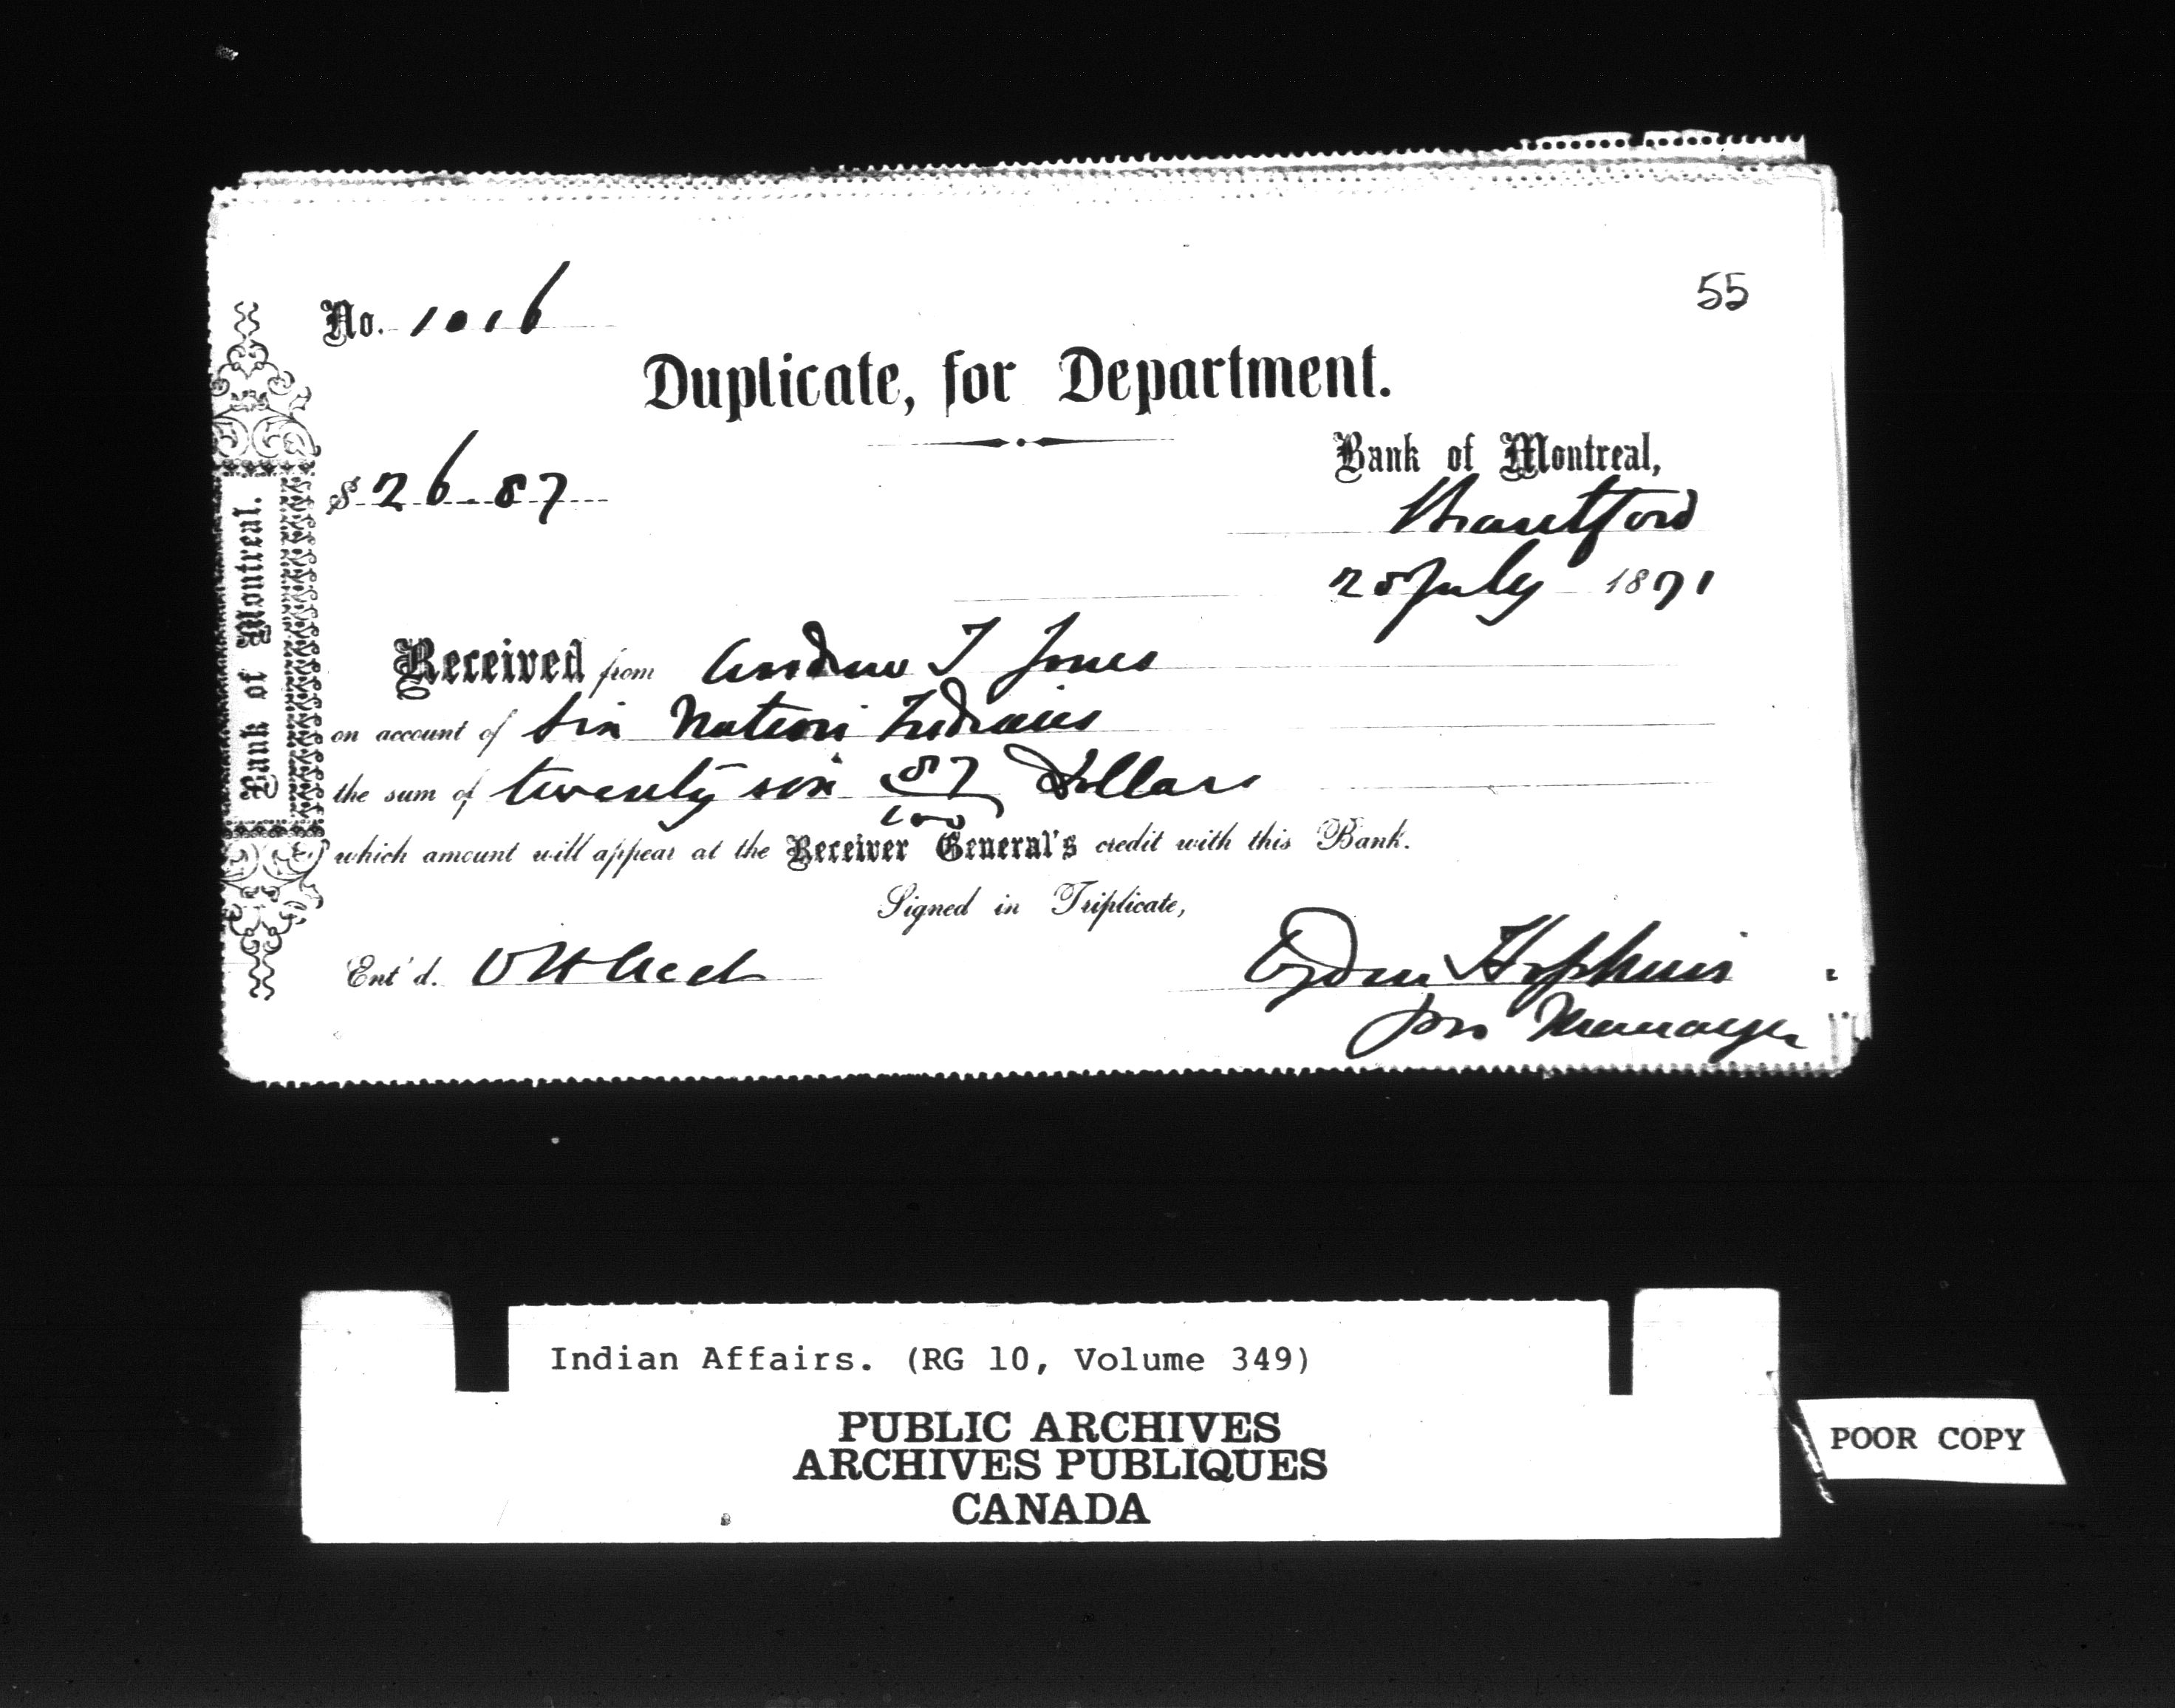 55
No. 1016
Duplicate, for Department.
Bank of Montreal,
$ 26.87
Brantford
25 July 1871
Bank of Montreal.
Received from Andrew T Jones
on account of Six Nation Indians
the sum of twenty six 87/100 Dollars
which amount will appear at the Receiver General's credit with this Bank.
Signed in Triplicate,
Ent'd.
Hopkins
pro Manager
Indian Affairs. (RG 10, Volume 349)
PUBLIC ARCHIVES
ARCHIVES PUBLIQUES
CANADA
POOR COPY